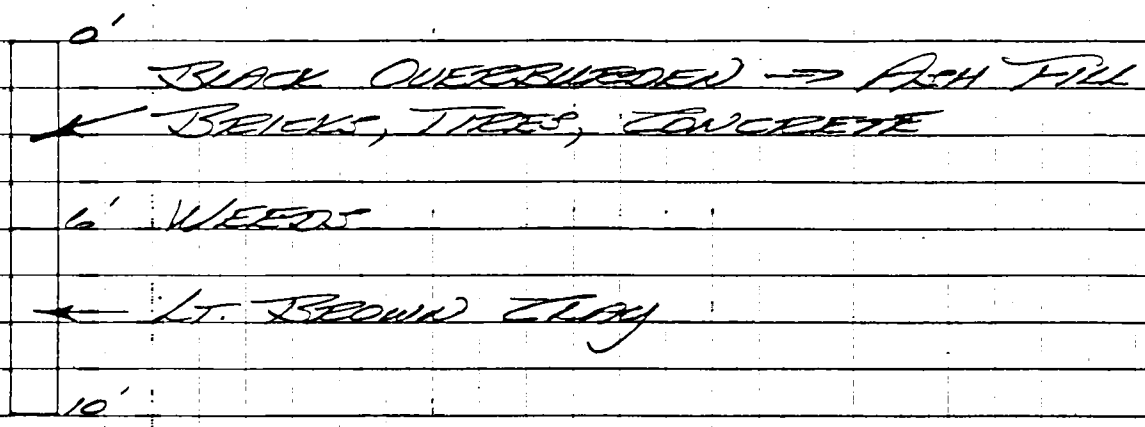 0'
BLACK OVERBURDEN → ASH FILL
BRICKS, TIRES, CONCRETE
6' WEEDS
LT. BROWN CLAY
10'